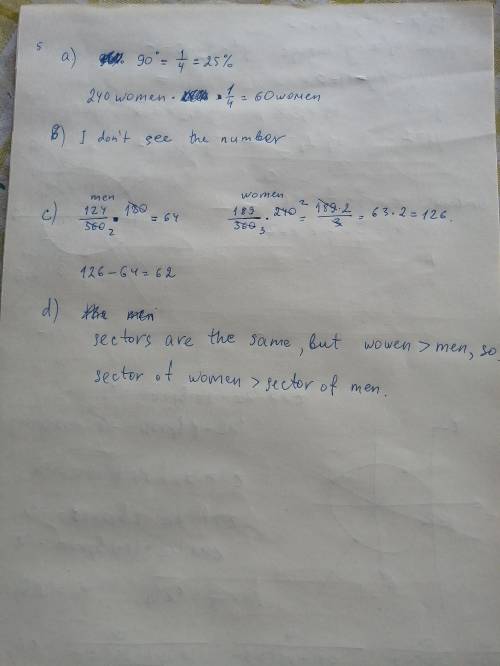 5
a) 90° = 1/4 = 25%
240 women · 1/4 = 60 women
B) I don't see the number
c) men 124/360 2 · 180 = 64 women 189/360 3 · 240 2 = 189·2/3 = 63·2 = 126.
126 - 64 = 62
d) the men
sectors are the same, but women > men, so,
sector of women > sector of men.